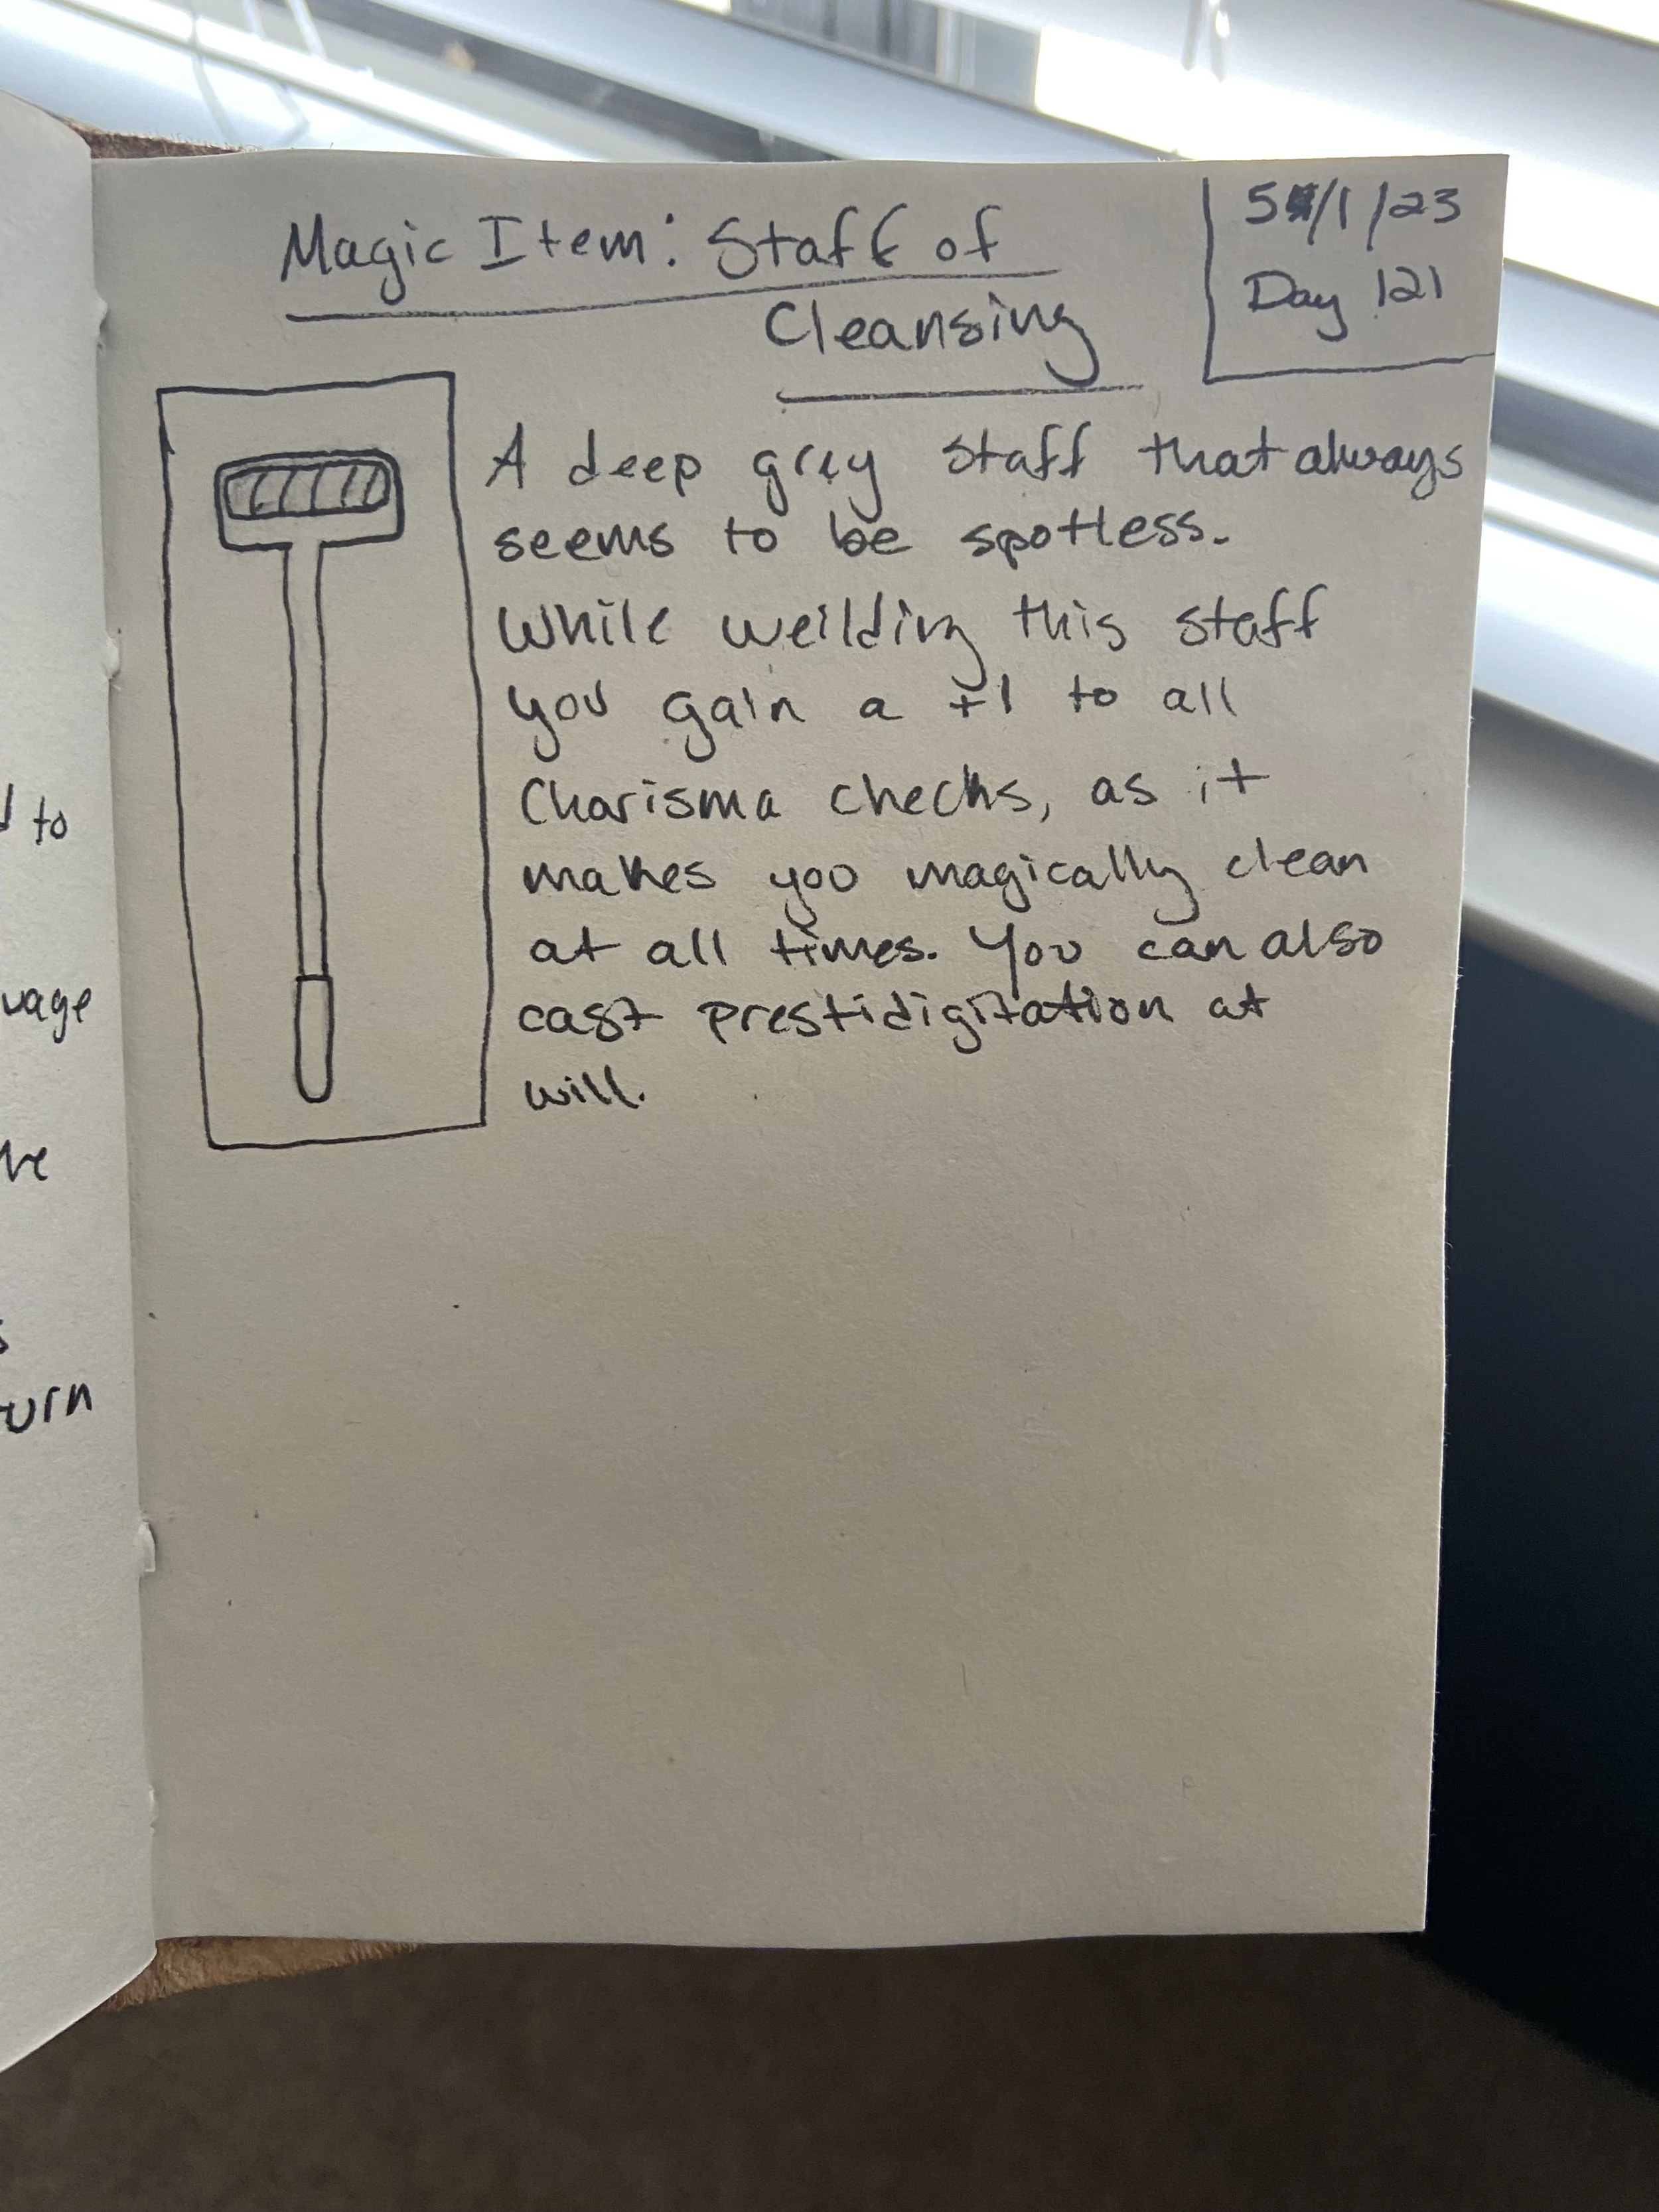 Magic Item: Staff of
Cleansing
5/1/23
Day 121
A deep grey staff that always
seems to be spotless.
While weilding this staff
you gain a +1 to all
Charisma checks, as it
makes you magically clean
at all times. You can also
cast prestidigitation at
will.
to
urn